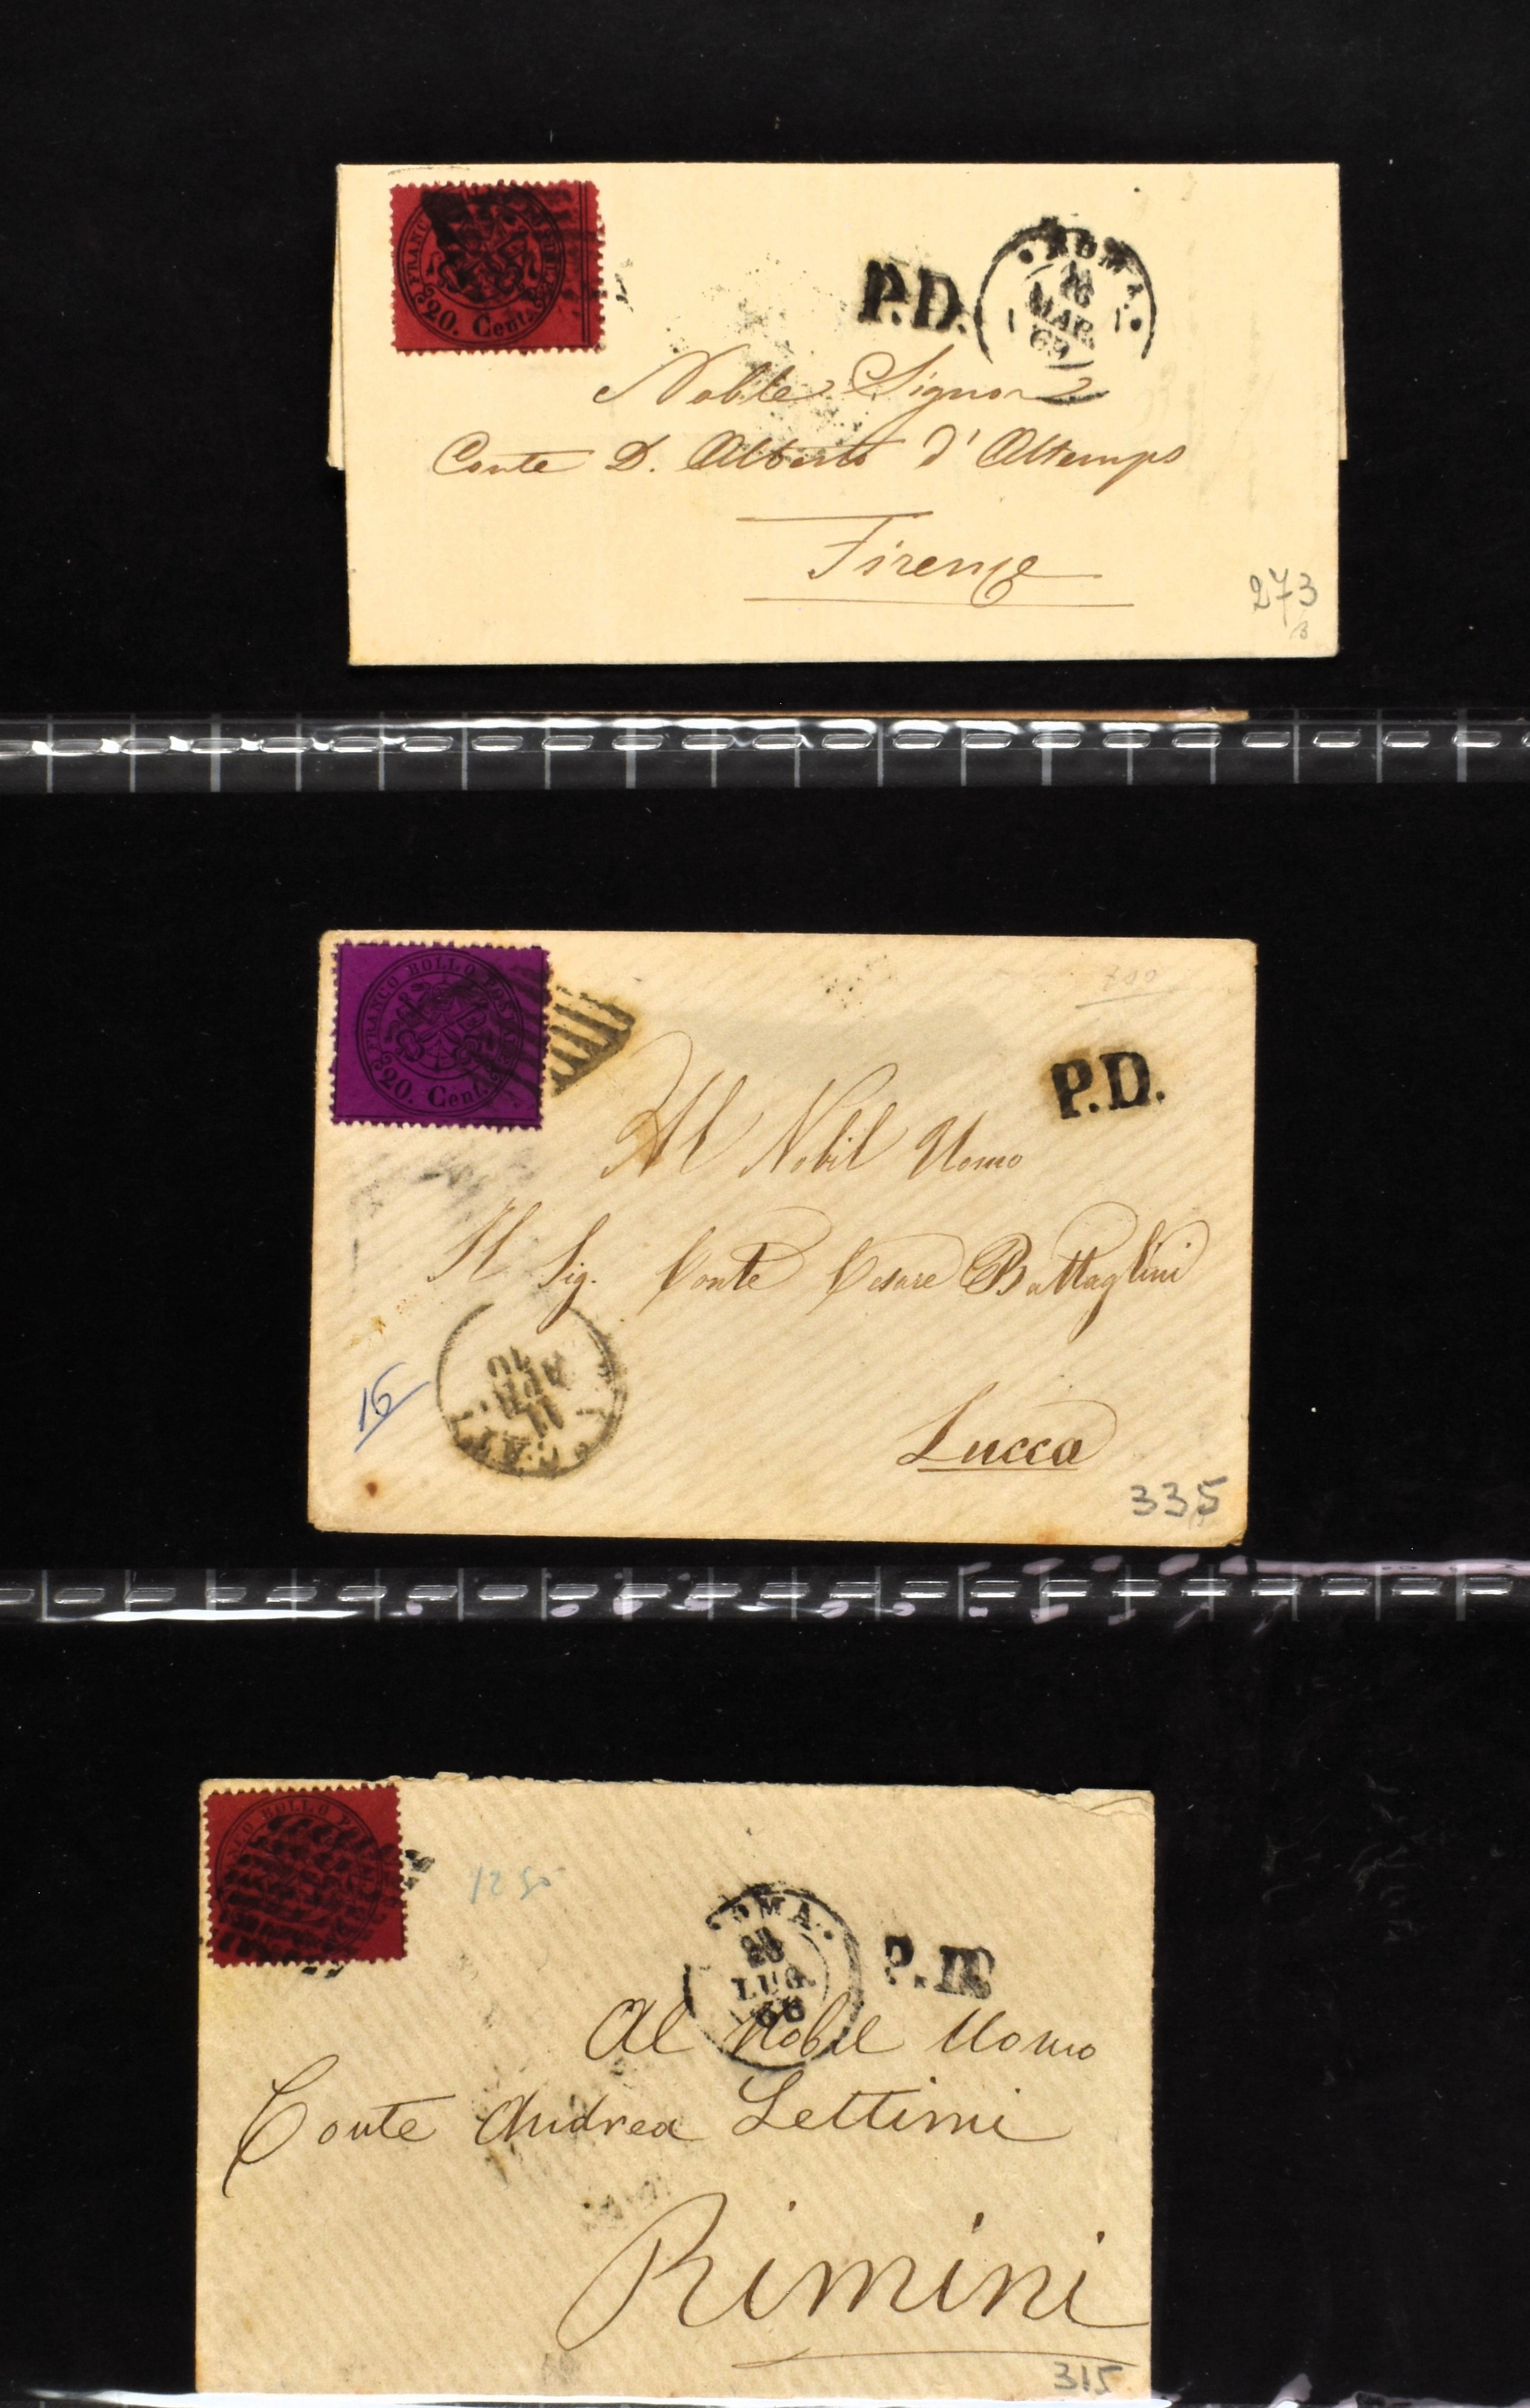 FRANCO
20. Cent.
P.D.
ROMA
MAR
69
Nobile Signore
Conte D. Alberto d'Altemps
Firenze
273
FRANCO BOLLO POSTALE
20. Cent.
P.D.
Al Nobil Uomo
Il Sig. Conte Cesare Battaglini
16
11
APR
70
Lucca
335
BOLLO
1250
ROMA
LUG
68
P.D
Al Nobil Uomo
Conte Andrea Lettimi
Rimini
315